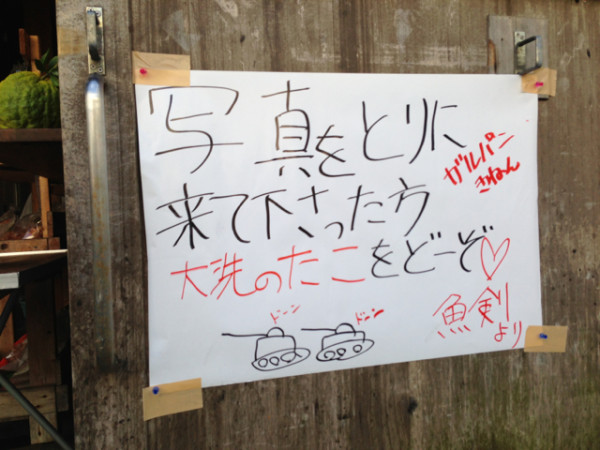 写真をとりに
来て下さった方
大洗のたこをどーぞ♡
ガルパン
きねん
ドーン
ドーン
魚剣
より